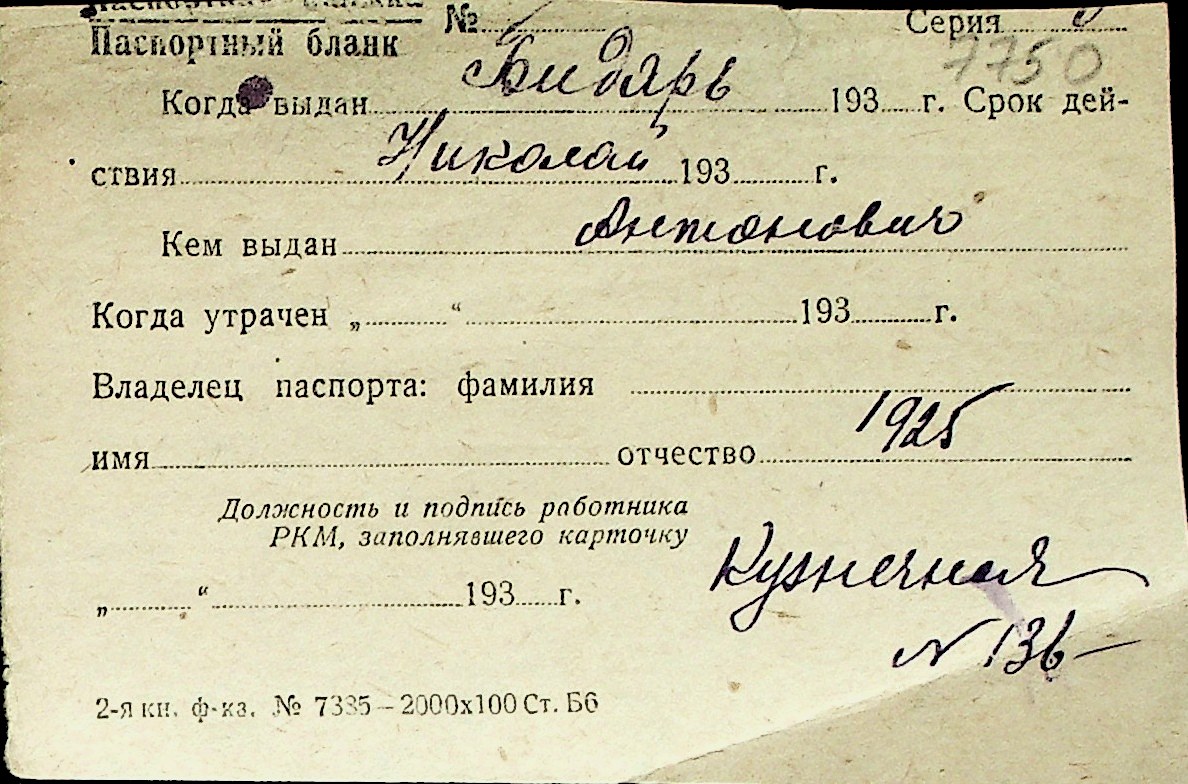 Паспортный бланк № Серия
7750
Бидярь
Когда выдан 193 г. Срок дей-
Николай
ствия 193 г.
Антонович
Кем выдан
Когда утрачен „ “ 193 г.
Владелец паспорта: фамилия
1925
имя отчество
Должность и подпись работника
РКМ, заполнявшего карточку
Кузнечная
„ “ 193 г.
N 136-
2-я кн. ф-ка. № 7335–2000х100 Ст. Б6